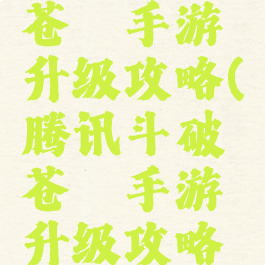 苍 手游
升级攻略(
腾讯斗破
苍 手游
升级攻略